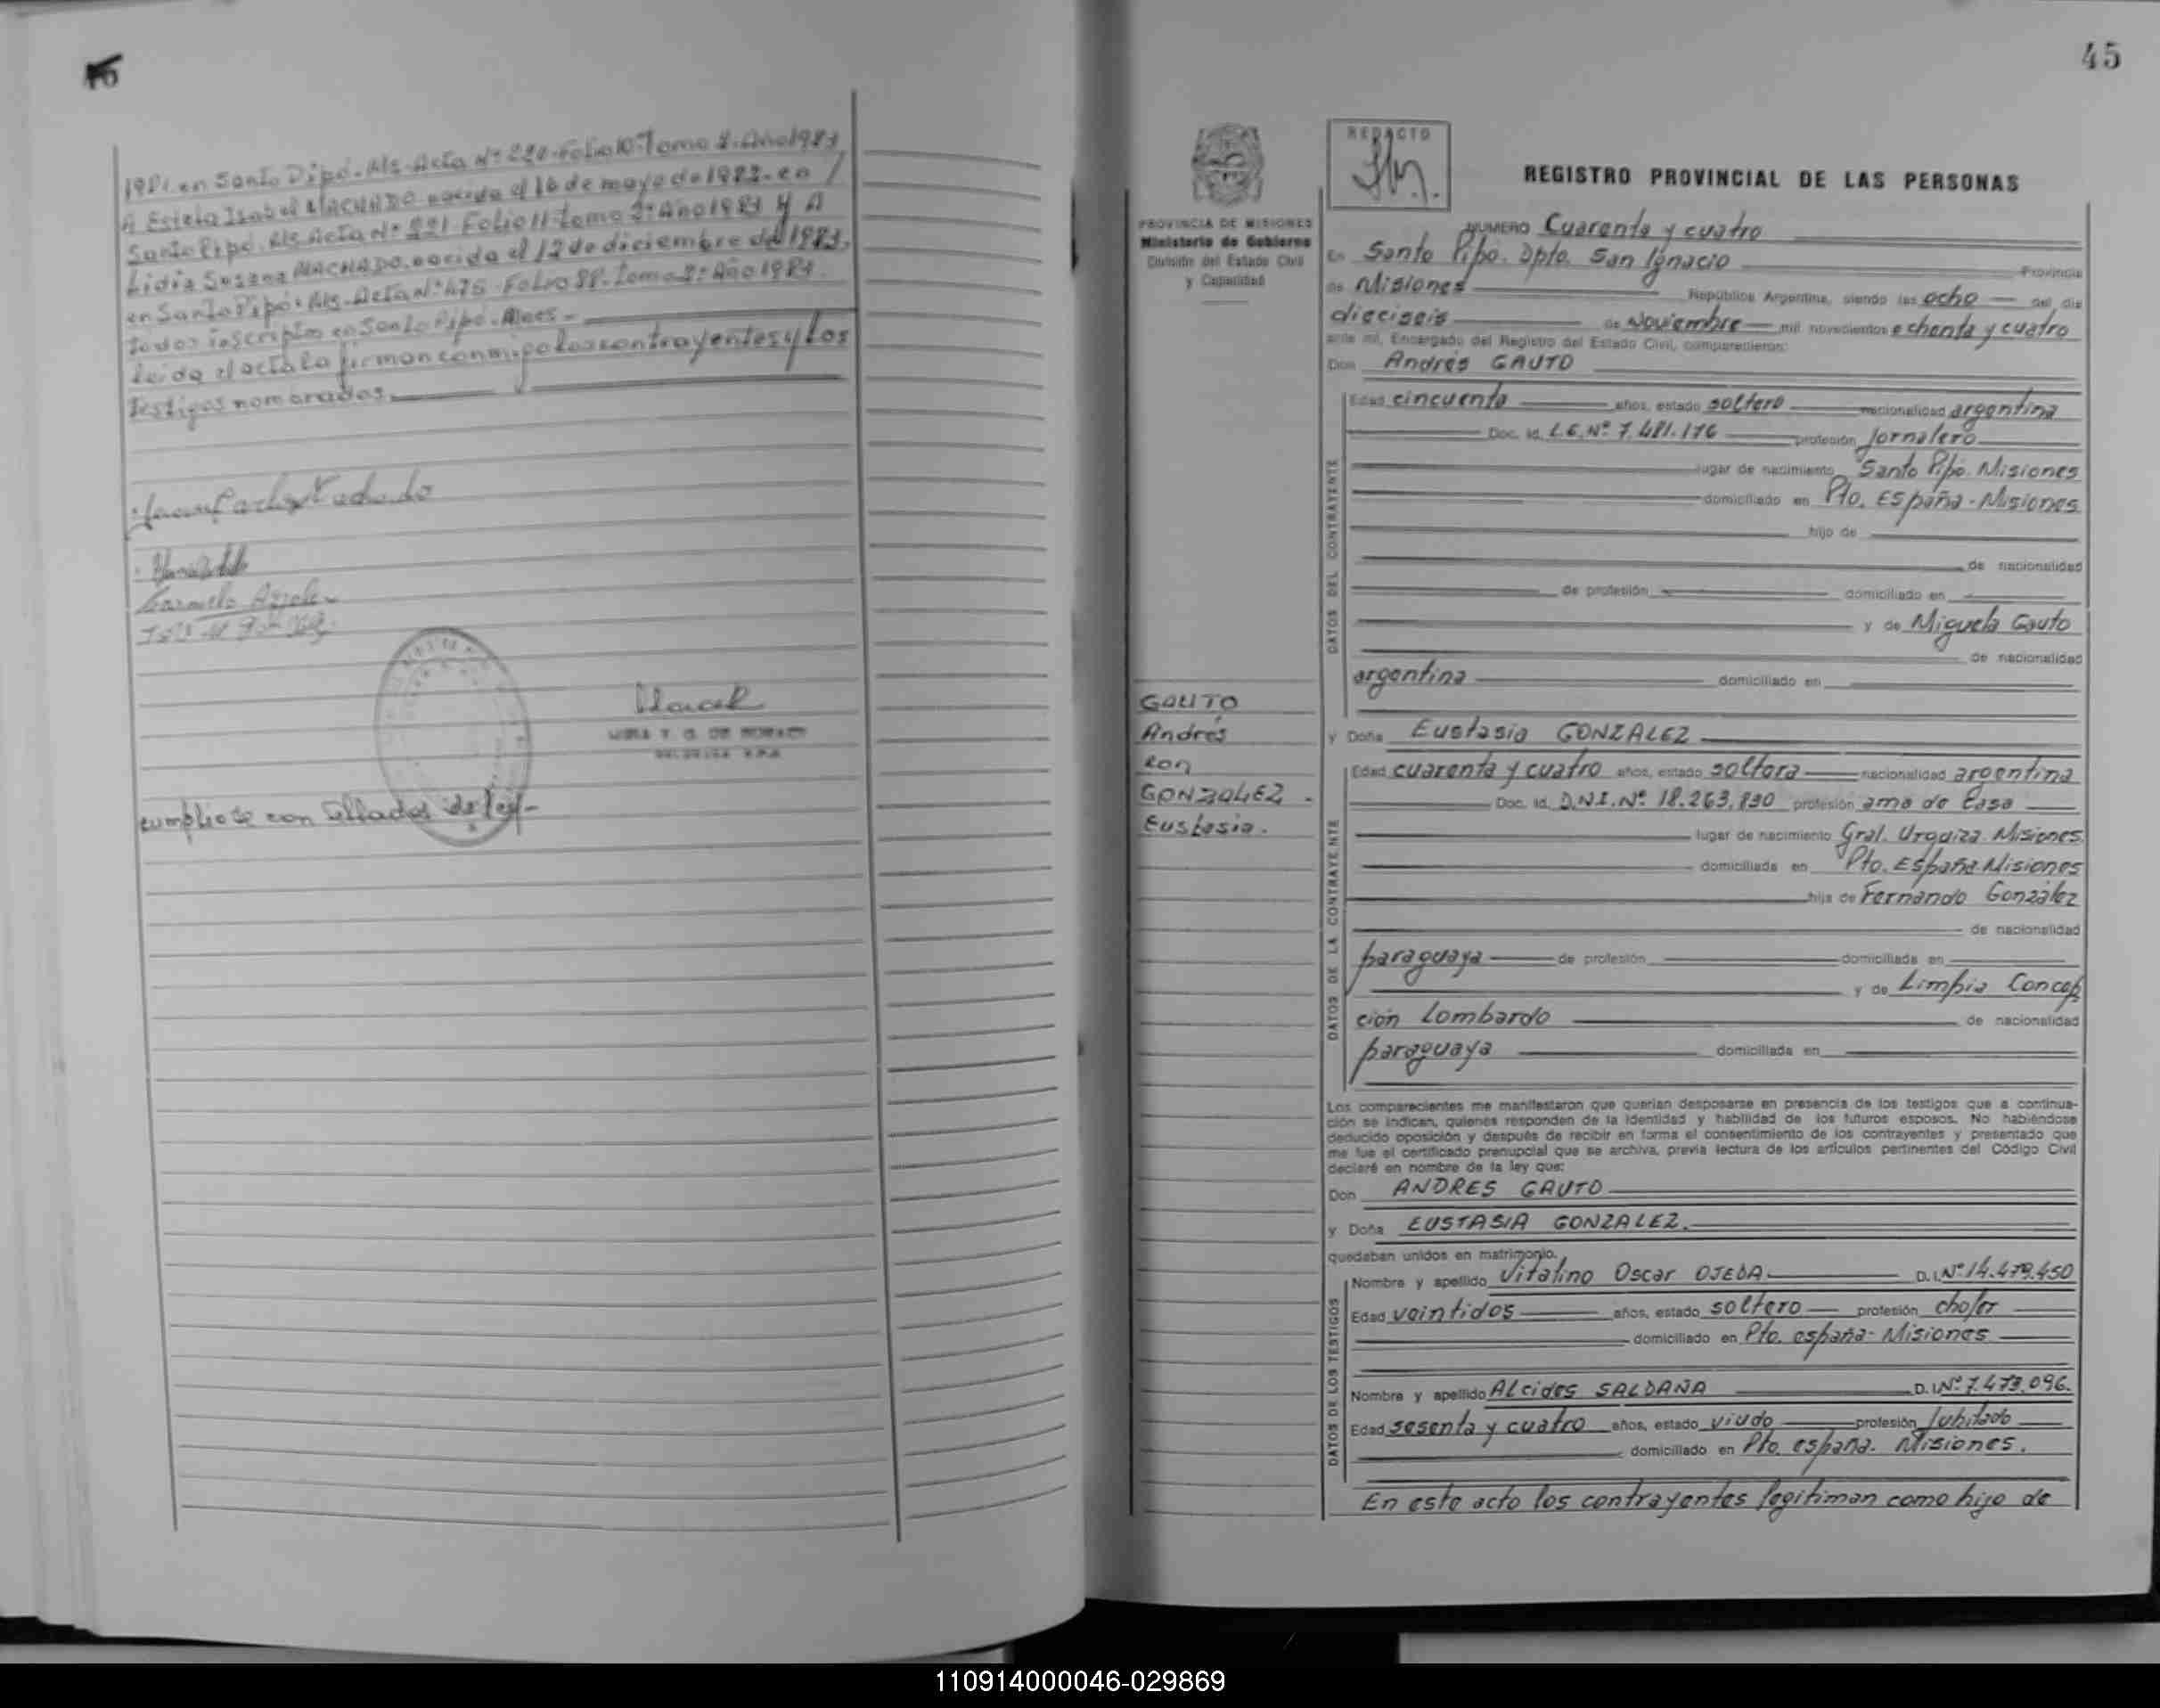 1981 en Santo Pipó. Ms. Acta Nº 220-Folio 10-Tomo 2. Año 1981
A Estela Isabel MACHADO nacida el 16 de mayo de 1982. en /
Santo Pipó. Ms Acta Nº 221 Folio 11 tomo 2º Año 1981 y A
Lidia Susana MACHADO. nacida el 12 de diciembre del 1983.
en Santo Pipó. Ms. Acta Nº 475 Folio 88. Tomo 2º Año 1984.
todos inscriptos en Santo Pipó. Mnes.-
leida el acta la firman conmigo los contrayentes y los
testigos nombrados.
cumpliose con sellados de ley-
45
PROVINCIA DE MISIONES
Ministerio de Gobierno
División del Estado Civil
y Capacidad
GAUTO
Andrés
con
GONZALEZ.
Eustasia.
REDACTO
REGISTRO PROVINCIAL DE LAS PERSONAS
NUMERO Cuarenta y cuatro
En Santo Pipó. Dpto. San Ignacio Provincia
de Misiones República Argentina, siendo las ocho del día
dieciseis de Noviembre mil novecientos ochenta y cuatro
ante mi, Encargado del Registro del Estado Civil, comparecieron:
Don Andrés GAUTO
Edad cincuenta años, estado soltero nacionalidad argentina
Doc. Id. L.E. Nº 7.481.176 profesión Jornalero
lugar de nacimiento Santo Pipó. Misiones
domiciliado en Pto. España - Misiones
hijo de
de nacionalidad
de profesión domiciliado en
y de Miguela Gauto
de nacionalidad
argentina domiciliado en
y Doña Eustasia GONZALEZ
Edad cuarenta y cuatro años, estado soltera nacionalidad argentina
Doc. Id. D.N.I. Nº 18.263.830 profesión ama de casa
lugar de nacimiento Gral. Urquiza. Misiones.
domiciliada en Pto. España. Misiones
hija de Fernando González
de nacionalidad
paraguaya de profesión domiciliada en
y de Limpia Concep
ción Lombardo de nacionalidad
paraguaya domiciliada en
DATOS DEL CONTRAYENTE
DATOS DE LA CONTRAYENTE
Los comparecientes me manifestaron que querían desposarse en presencia de los testigos que a continua-
ción se indican, quienes responden de la identidad y habilidad de los futuros esposos. No habiéndose
deducido oposición y después de recibir en forma el consentimiento de los contrayentes y presentado que
me fue el certificado prenupcial que se archiva, previa lectura de los artículos pertinentes del Código Civil
declaré en nombre de la ley que:
Don ANDRES GAUTO
y Doña EUSTASIA GONZALEZ.
quedaban unidos en matrimonio.
Nombre y apellido Vitalino Oscar OJEDA D.I. Nº 14.479.450
Edad veintidos años, estado soltero profesión chofer
domiciliado en Pto. españa - Misiones
Nombre y apellido Alcides SALDAÑA D.I. Nº 7.473.096.
Edad sesenta y cuatro años, estado viudo profesión Jubilado
domiciliado en Pto. españa. Misiones.
DATOS DE LOS TESTIGOS
En este acto los contrayentes legitiman como hijo de
110914000046-029869